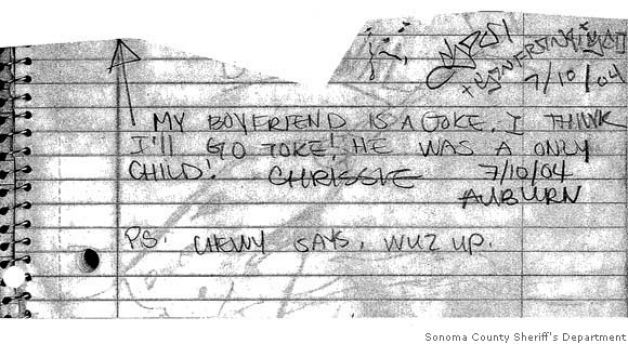 7/10/04
MY BOYFRIEND IS A JOKE. I THINK
I'LL GO TOKE! HE WAS A ONLY
CHILD! CHRISSIE 7/10/04
AUBURN
PS. CHEWY SAYS, WUZ UP.
Sonoma County Sheriff's Department